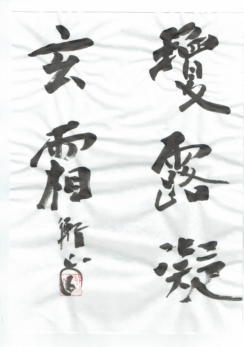 瓊露凝
玄霜